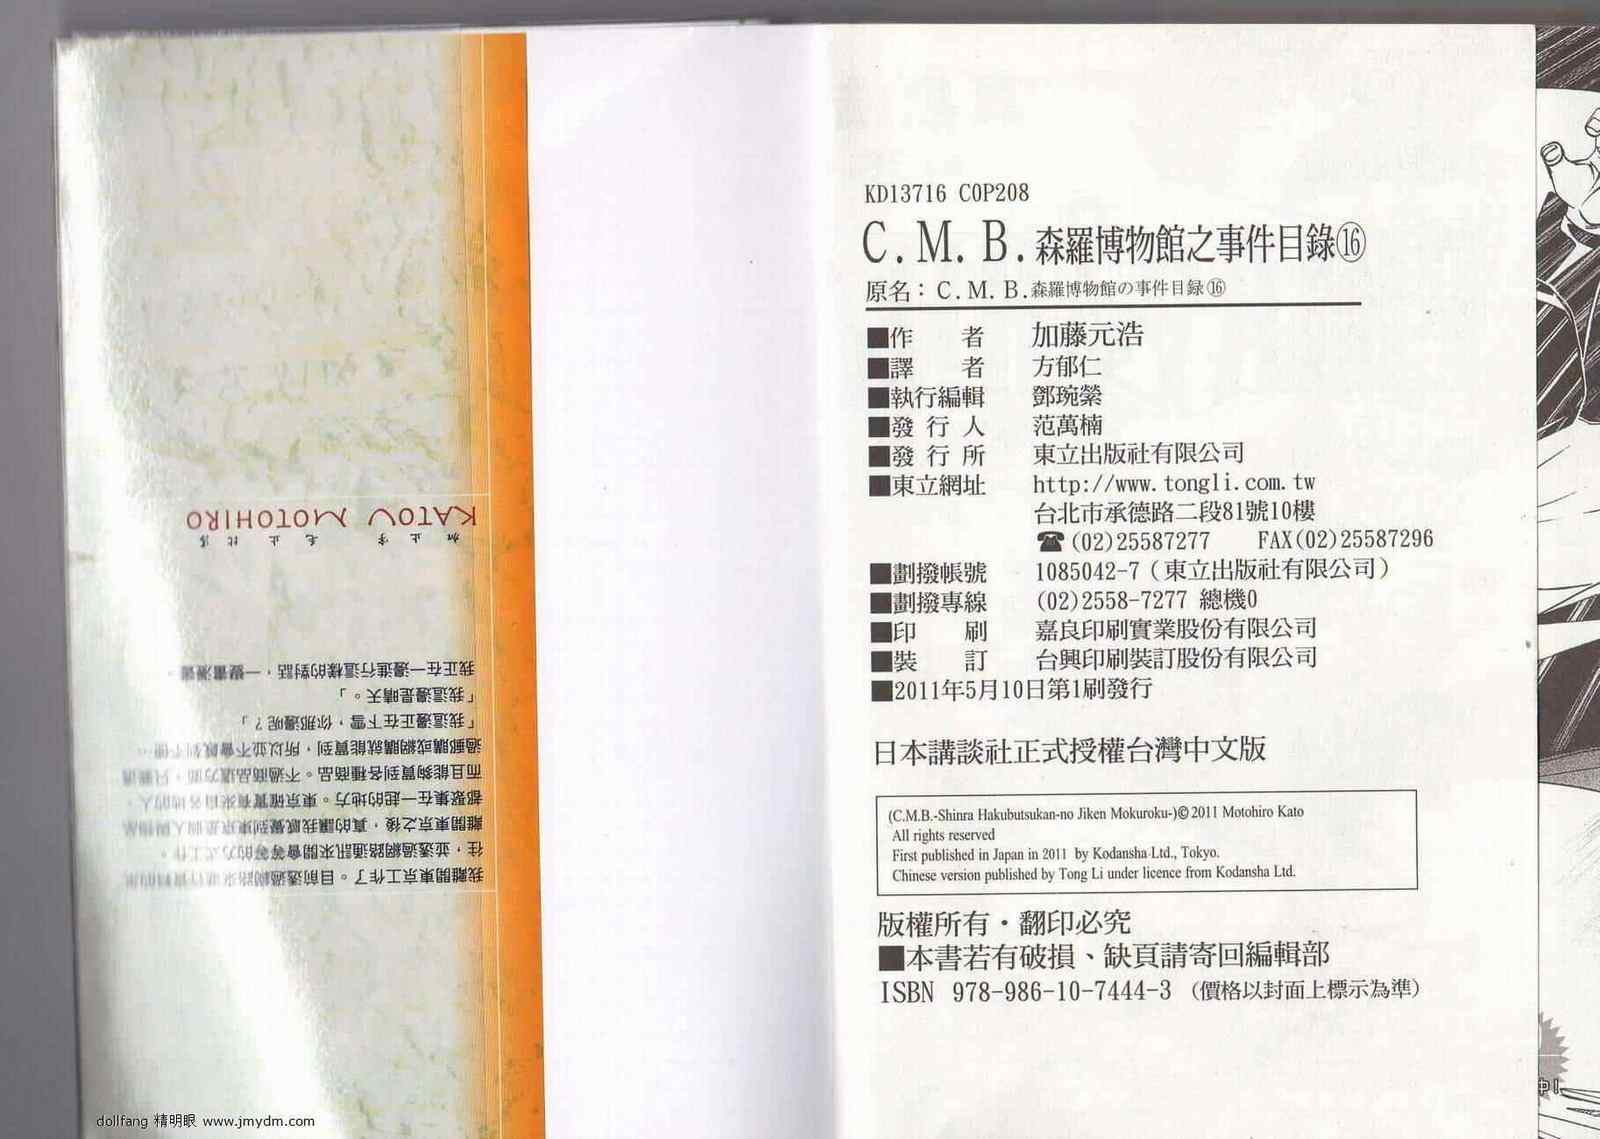 KD13716 COP208
C.M.B.森羅博物館之事件目錄⑯
原名：C.M.B.森羅博物館の事件目録⑯
■作　者　加藤元浩
■譯　者　方郁仁
■執行編輯　鄧琬縈
■發行人　范萬楠
■發行所　東立出版社有限公司
■東立網址　http://www.tongli.com.tw
台北市承德路二段81號10樓
☎(02)25587277　FAX(02)25587296
■劃撥帳號　1085042-7（東立出版社有限公司）
■劃撥專線　(02)2558-7277 總機0
■印　刷　嘉良印刷實業股份有限公司
■裝　訂　台興印刷裝訂股份有限公司
■2011年5月10日第1刷發行
日本講談社正式授權台灣中文版
(C.M.B.-Shinra Hakubutsukan-no Jiken Mokuroku-)©2011 Motohiro Kato
All rights reserved
First published in Japan in 2011 by Kodansha Ltd., Tokyo.
Chinese version published by Tong Li under licence from Kodansha Ltd.
版權所有・翻印必究
■本書若有破損、缺頁請寄回編輯部
ISBN 978-986-10-7444-3（價格以封面上標示為準）
我離開東京工作了。目前透過網路來進行資料的
往，並透過網路通訊來開會等等的方式工作。
離開東京之後，真的讓我感覺到東京是個人與物品
都聚集在一起的地方。東京確實有來自各地的人，
而且能夠買到各種商品。不過商品這方面，只要透
過郵購或網購就能買到，所以並不會感到不便…
「我這邊正在下雪，你那邊呢？」
「我這邊是晴天。」
我正在一邊進行這樣的對話，一邊畫漫畫。
KATOU MOTOHIRO
dollfang 精明眼 www.jmydm.com
中!